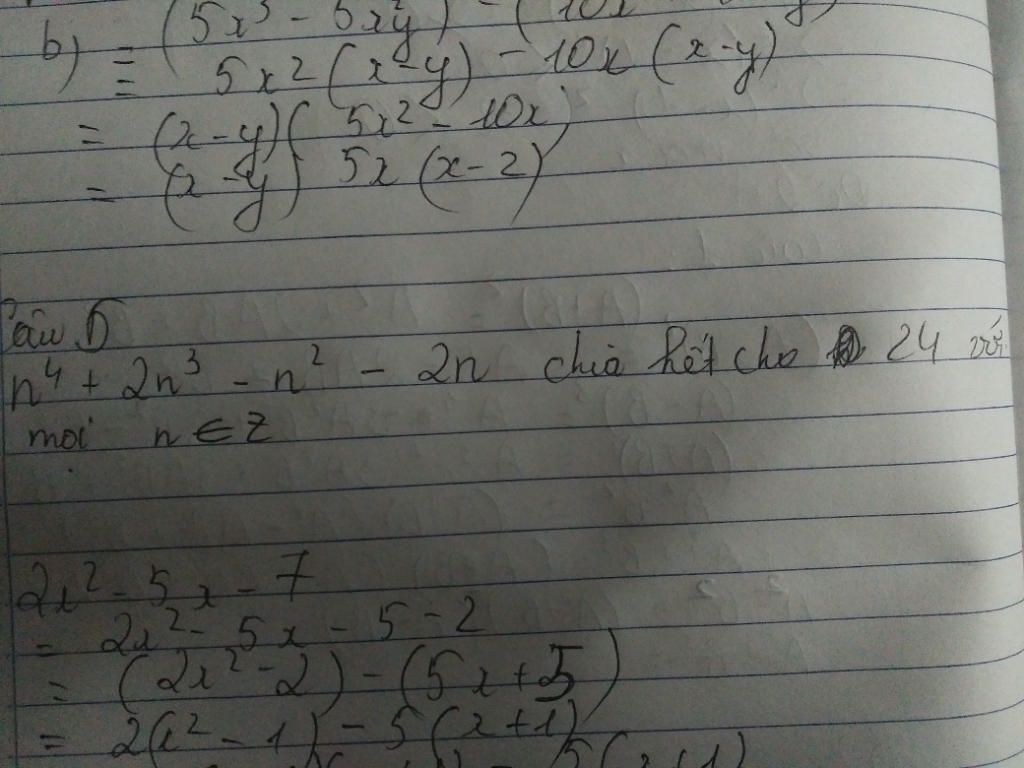 b) = (5x³ - 5x²y) - (10x
= 5x2 (x-y) - 10x (x-y)
= (x-y)( 5x² - 10x)
= (x-y) 5x (x-2)
Câu 5
n⁴ + 2n³ - n² - 2n chia hết cho 24 với
mọi n ∈ Z
2x² - 5x - 7
= 2x² - 5x - 5 - 2
= (2x² - 2) - (5x + 5)
= 2(x² - 1) - 5(x+1)
- 5(x+1)